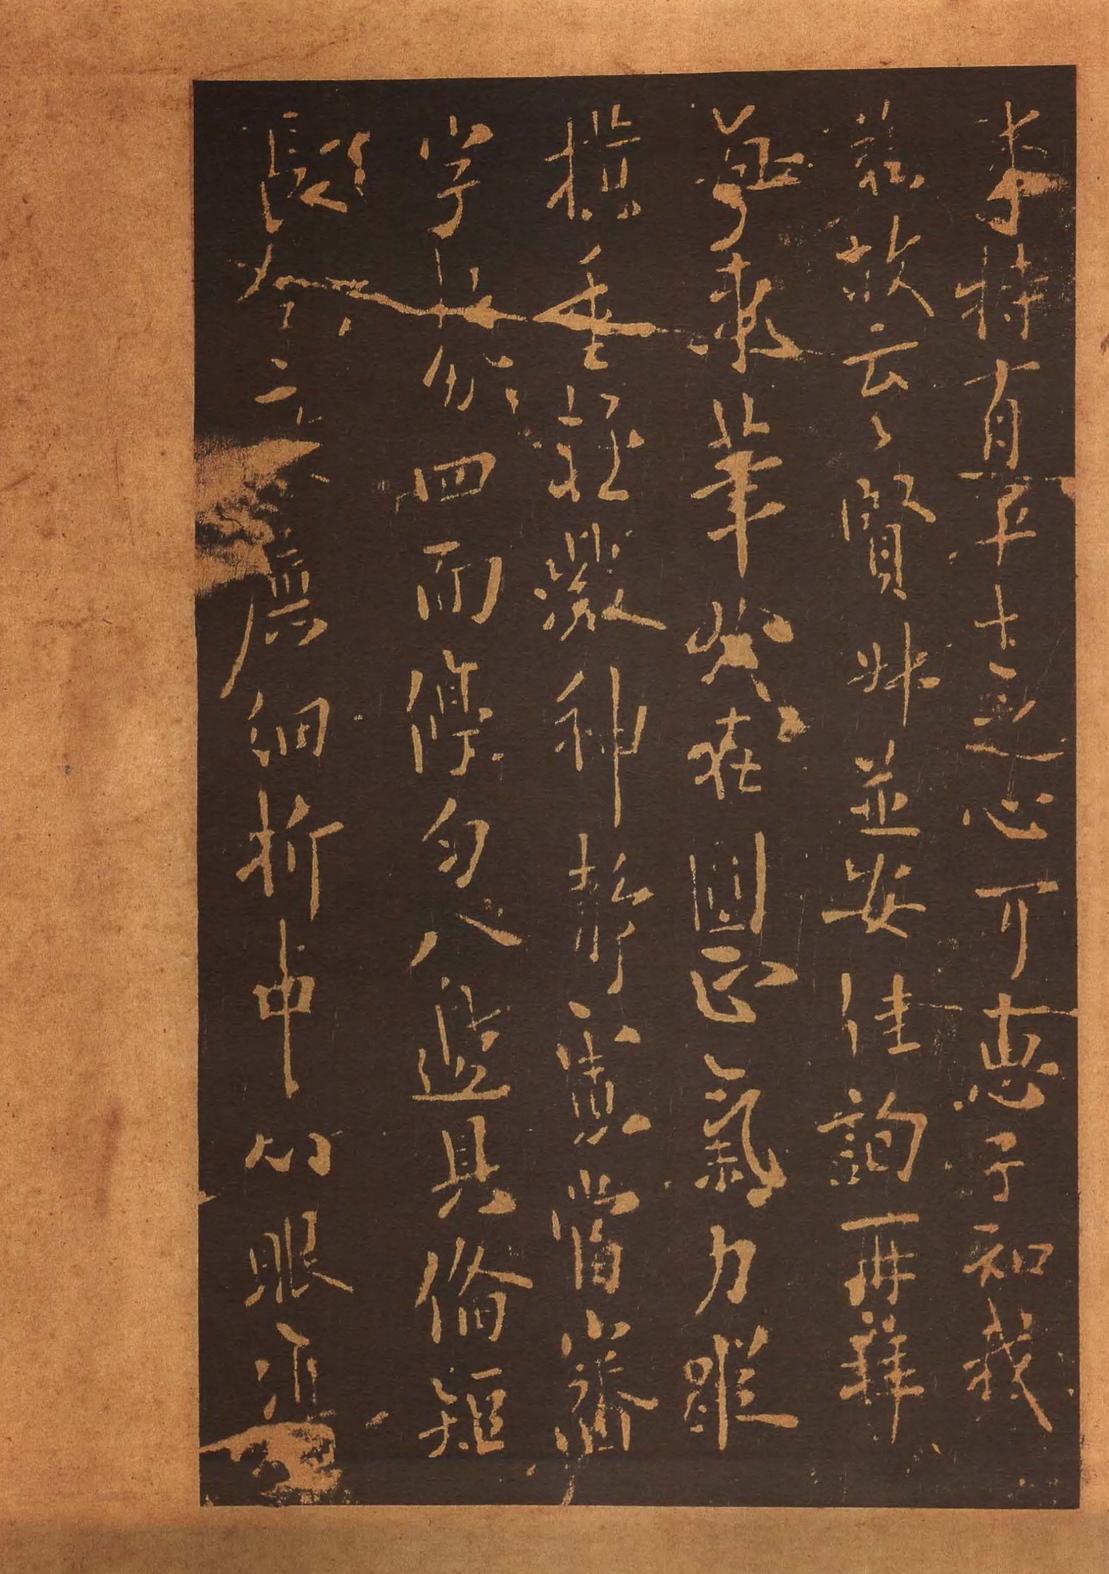 直平生之心可惠子知我
故云云賢妹並安佳詢再拜
每秉筆必在圓正氣力縱
橫重輕凝神靜慮當審
字勢四面停勻八邊具備短
長合度麤細折中心眼准